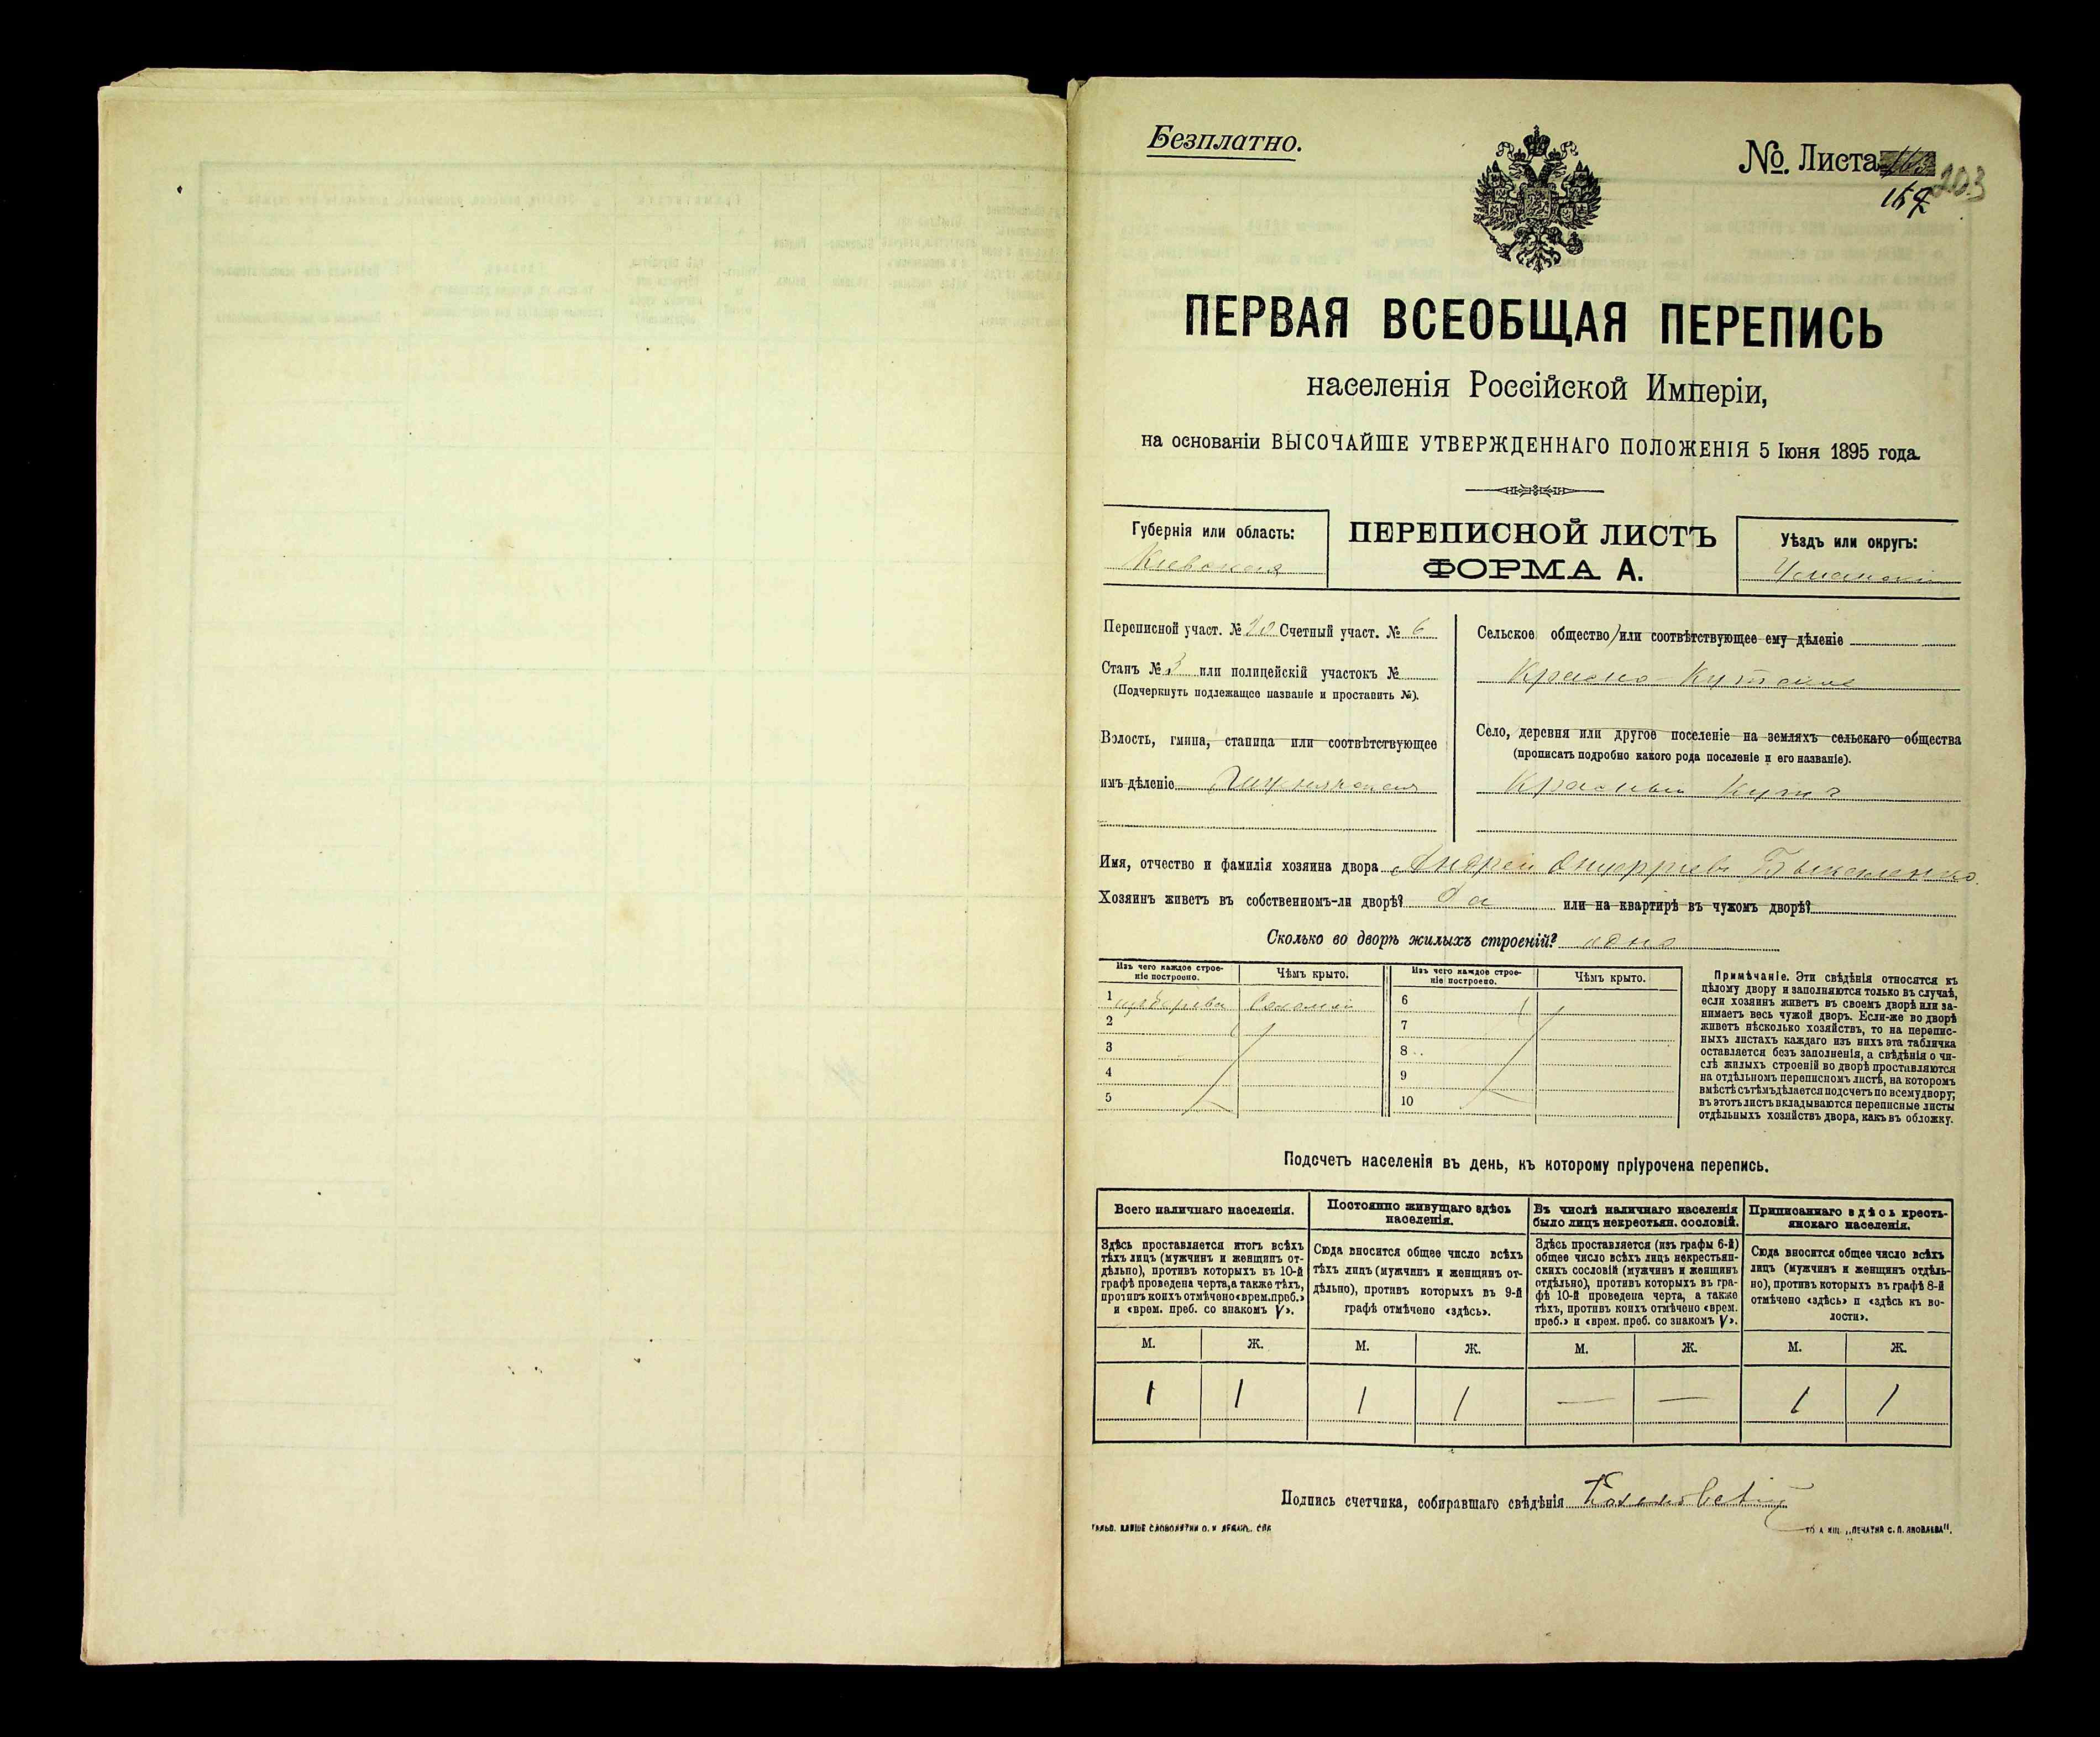 Безплатно.
№. Листа
167 203
ПЕРВАЯ ВСЕОБЩАЯ ПЕРЕПИСЬ
населенія Россійской Имперіи,
на основаніи ВЫСОЧАЙШЕ УТВЕРЖДЕННАГО ПОЛОЖЕНІЯ 5 Іюня 1895 года.
Губернія или область:
Кіевская
ПЕРЕПИСНОЙ ЛИСТЪ
ФОРМА А.
Уѣздъ или округъ:
Уманскій
Переписной участ. № 20 Счетный участ. № 6
Станъ № 3 или полицейскій участокъ №
(Подчеркнуть подлежащее названіе и проставить №).
Волость, гмина, станица или соотвѣтствующее
имъ дѣленіе
Сельское общество или соотвѣтствующее ему дѣленіе
Красно-Кутское
Село, деревня или другое поселеніе на земляхъ сельскаго общества
(прописать подробно какого рода поселеніе и его названіе).
Красный Кутъ
Имя, отчество и фамилія хозяина двора Андрей Онуфріевъ
Хозяинъ живетъ въ собственномъ-ли дворѣ? Да или на квартирѣ въ чужомъ дворѣ?
Сколько во дворѣ жилыхъ строеній? одно
Изъ чего каждое строе-
ніе построено.
Чѣмъ крыто.
Изъ чего каждое строе-
ніе построено.
Чѣмъ крыто.
1 изъ дерева Соломой
2
3
4
5
6
7
8
9
10
Примѣчаніе. Эти свѣдѣнія относятся къ
цѣлому двору и заполняются только въ случаѣ,
если хозяинъ живетъ въ своемъ дворѣ или за-
нимаетъ весь чужой дворъ. Если-же во дворѣ
живетъ нѣсколько хозяйствъ, то на перепис-
ныхъ листахъ каждаго изъ нихъ эта табличка
оставляется безъ заполненія, а свѣдѣнія о чи-
слѣ жилыхъ строеній во дворѣ проставляются
на отдѣльномъ переписномъ листѣ, на которомъ
вмѣстѣ съ тѣмъ дѣлается подсчетъ по всему двору;
въ этотъ листъ вкладываются переписные листы
отдѣльныхъ хозяйствъ двора, какъ въ обложку.
Подсчетъ населенія въ день, къ которому пріурочена перепись.
Всего наличнаго населенія.
Здѣсь проставляется итогъ всѣхъ
тѣхъ лицъ (мужчинъ и женщинъ от-
дѣльно), противъ которыхъ въ 10-й
графѣ проведена черта, а также тѣхъ,
противъ коихъ отмѣчено «врем. преб.»
и «врем. преб. со знакомъ V».
Постоянно живущаго здѣсь
населенія.
Сюда вносится общее число всѣхъ
тѣхъ лицъ (мужчинъ и женщинъ от-
дѣльно), противъ которыхъ въ 9-й
графѣ отмѣчено «здѣсь».
Въ числѣ наличнаго населенія
было лицъ некрестьян. сословій.
Здѣсь проставляется (изъ графы 6-й)
общее число всѣхъ лицъ некрестьян-
скихъ сословій (мужчинъ и женщинъ
отдѣльно), противъ которыхъ въ гра-
фѣ 10-й проведена черта, а также
тѣхъ, противъ коихъ отмѣчено «врем.
преб.» и «врем. преб. со знакомъ V».
Приписаннаго здѣсь кресть-
янскаго населенія.
Сюда вносится общее число всѣхъ
лицъ (мужчинъ и женщинъ отдѣль-
но), противъ которыхъ въ графѣ 8-й
отмѣчено «здѣсь» и «здѣсь къ во-
лости».
М. Ж. М. Ж. М. Ж. М. Ж.
1 1 1 1 — — 1 1
Подпись счетчика, собиравшаго свѣдѣнія
„ПЕЧАТНЯ С. П. ЯКОВЛЕВА“.